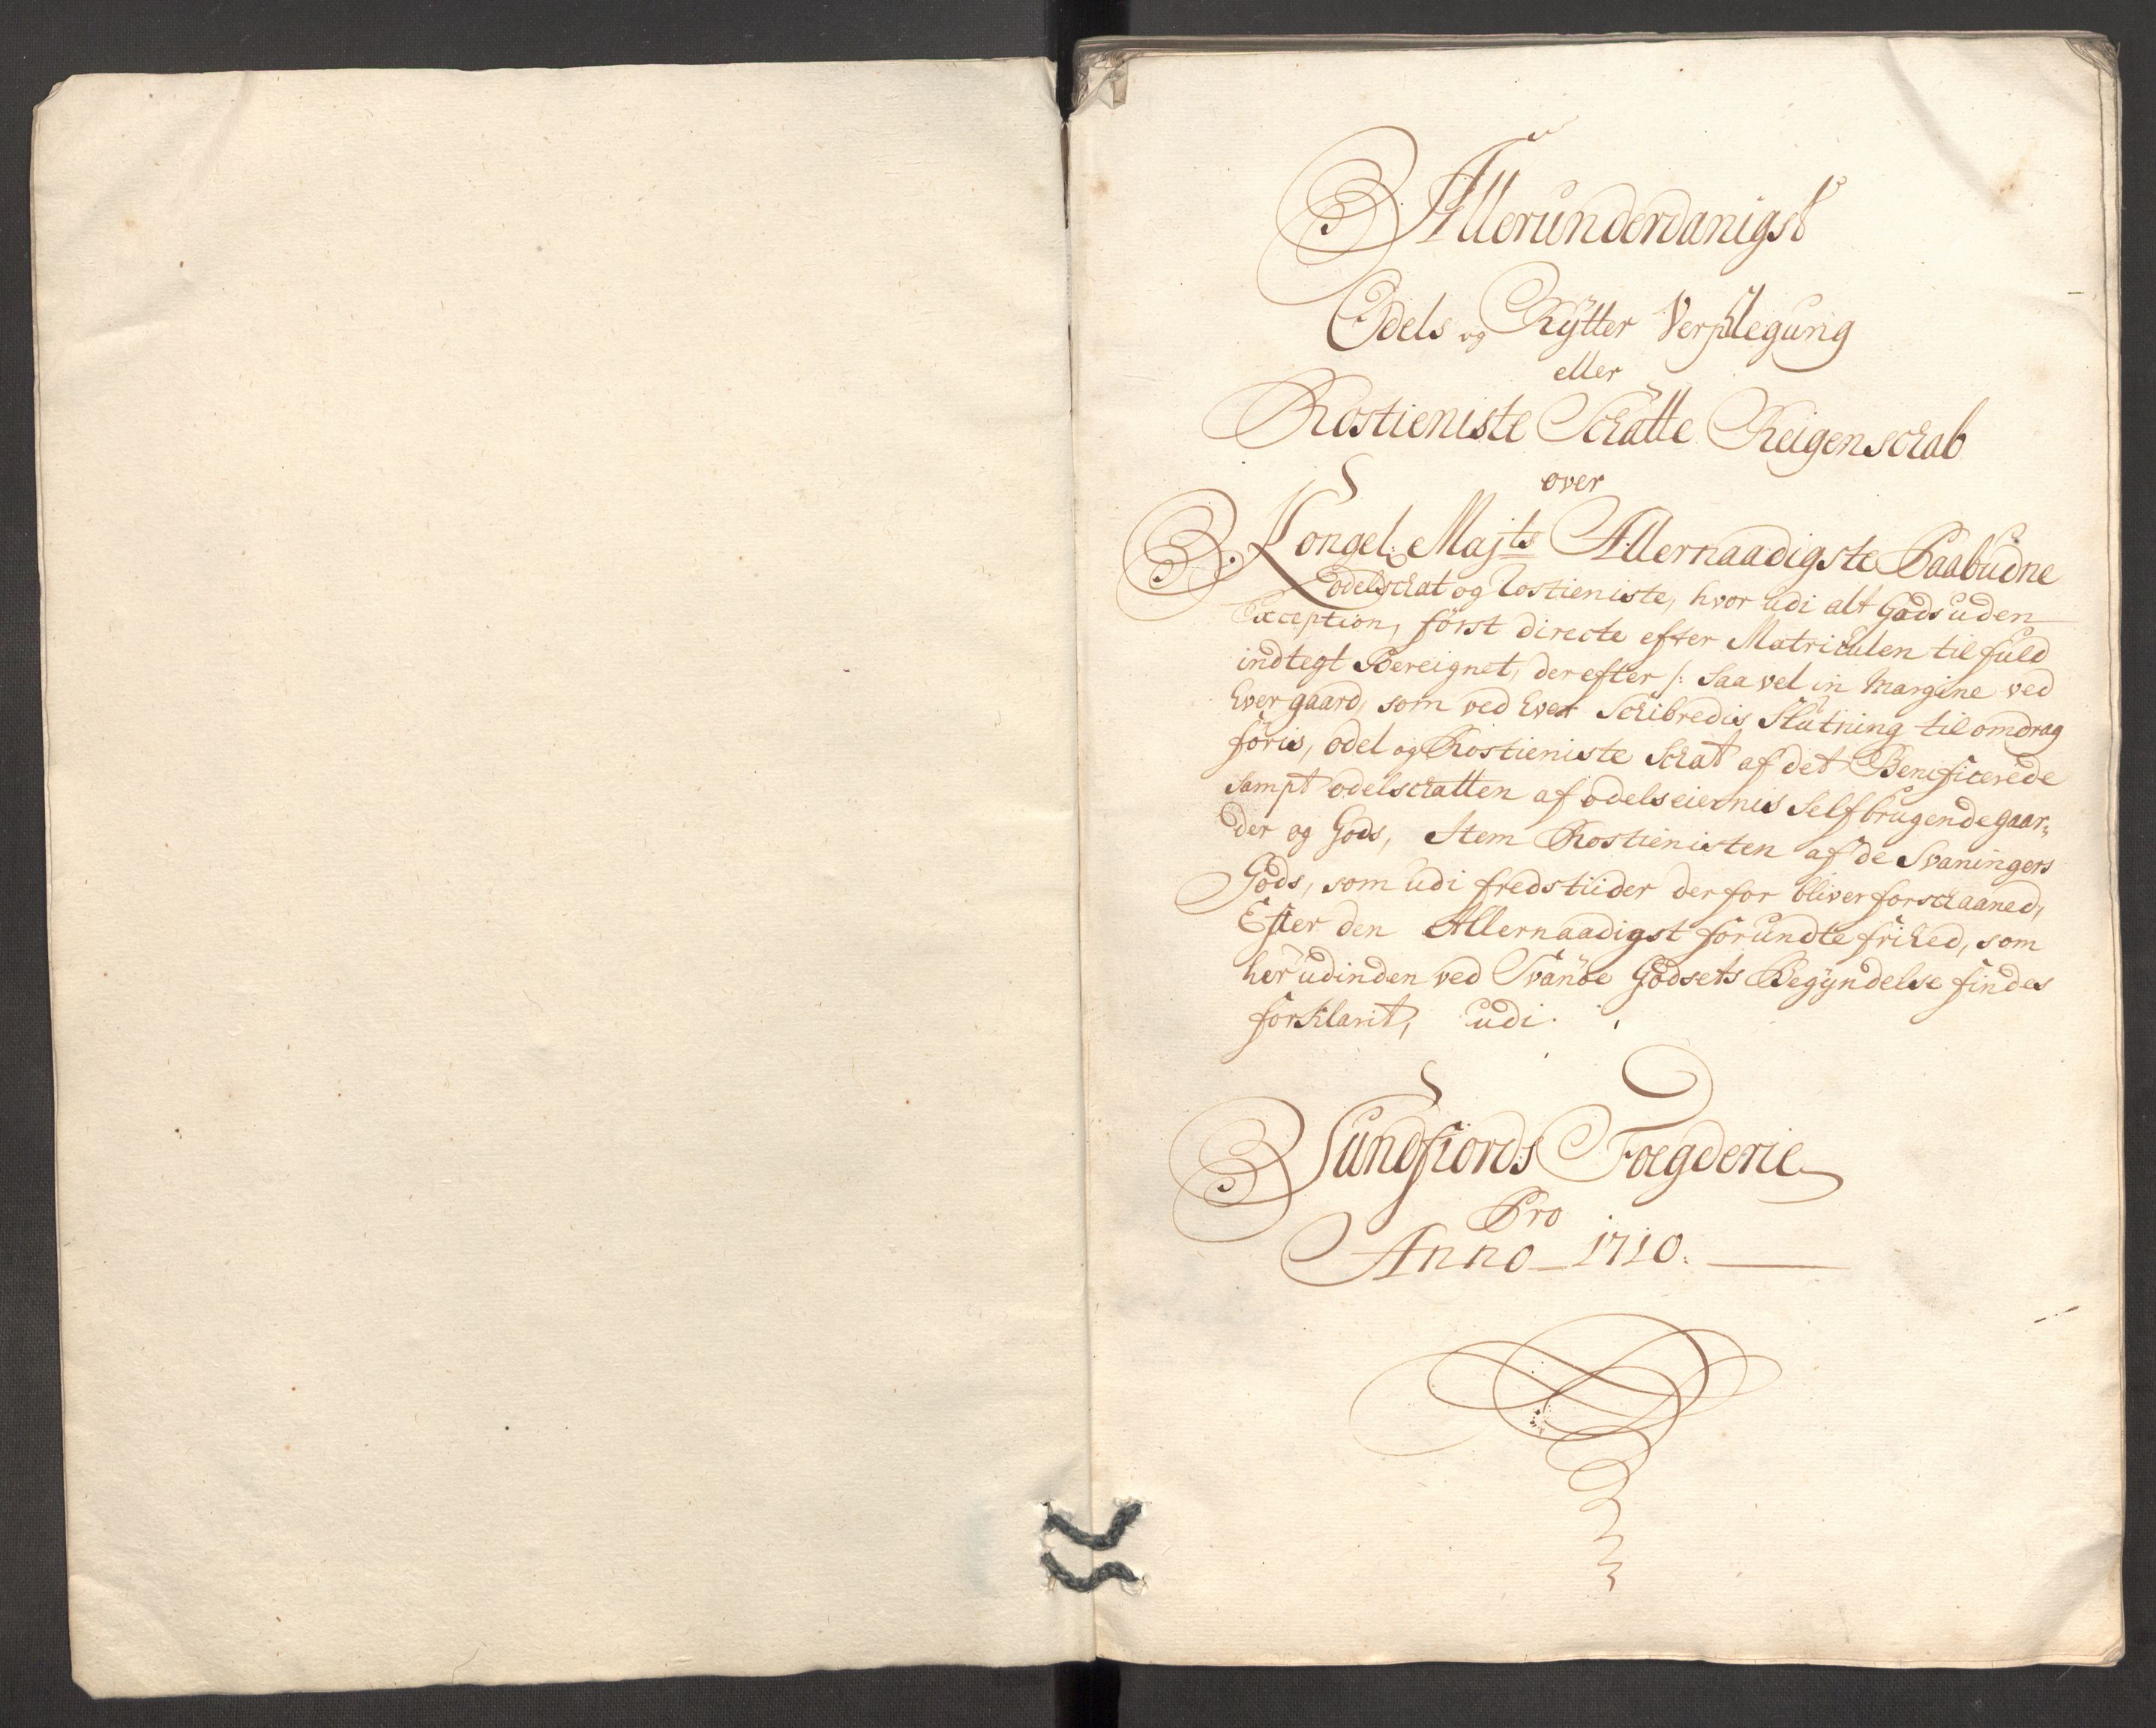 Allerunderdanigst
Odels og Rÿtter Verplegung
eller
Rostieniste Schatte Reigenschab
over
Kongel: Majts Allernaadigste Paabudne
Odelschat og Rostieniste, hvor udi alt Gods uden
Exception, först directe efter Matriculen til fuld
indtegt Bereignet, derefter /: saa vel in Margine ved
hver gaard, som ved hver Schibredis Slutning til omdrag
föris, odel og Rostieniste Schat af det Beneficerede
sampt odelschatten af odelseiernis Selfbrugende gaar-
der og Gods, Item Rostienisten af de Svaningers
Gods, som udi fredstiider derfor bliver forschaaned,
Efter den Allernaadigst forundte frihed, som
her udinden ved Svanöe Godsets Begÿndelse findes
forklarit, udi
Sundfiords Foegderie
Pro
Anno 1710.